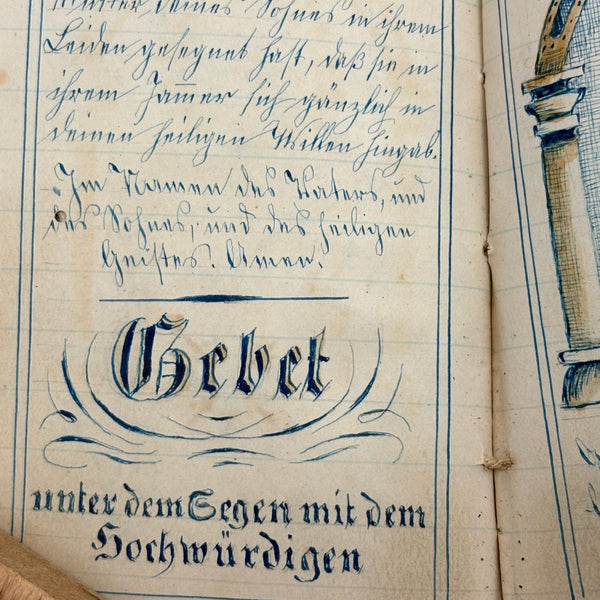 Mutter deines Sohnes in ihrem
Leiden gesegnet hast, daß sie in
ihrem Jam̄er sich gänzlich in
deinen heiligen Willen hingab.
Im Namen des Vaters, und
des Sohnes, und des heiligen
Geistes. Amen.
Gebet
unter dem Segen mit dem
Hochwürdigen